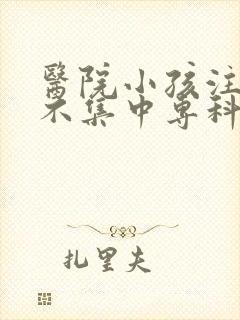 醫院小孩注
不集中專科
扎里夫